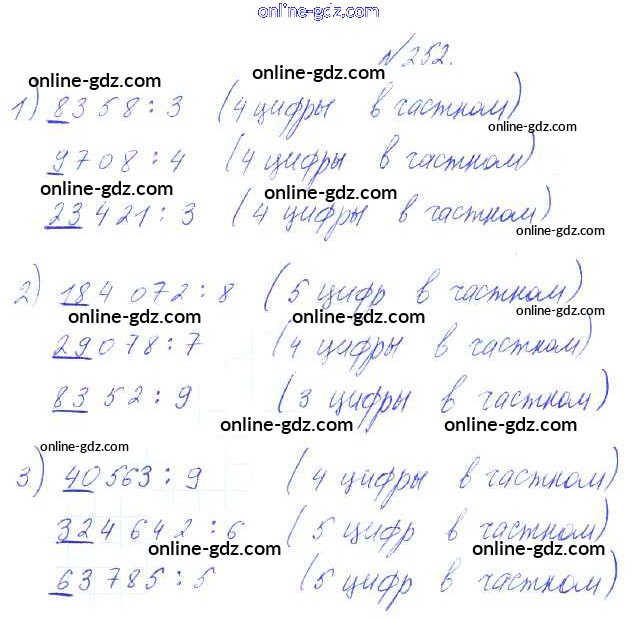 online-gdz.com
№252.
online-gdz.com online-gdz.com
1) 8358 : 3 (4 цифры в частном)
online-gdz.com
9708 : 4 (4 цифры в частном)
online-gdz.com online-gdz.com
23 421 : 3 (4 цифры в частном)
online-gdz.com
2) 184 072 : 8 (5 цифр в частном)
online-gdz.com online-gdz.com
29078 : 7 (4 цифры в частном)
online-gdz.com
8352 : 9 (3 цифры в частном)
online-gdz.com online-gdz.com
online-gdz.com
3) 40563 : 9 (4 цифры в частном)
324 642 : 6 (5 цифр в частном)
online-gdz.com online-gdz.com
63785 : 5 (5 цифр в частном)